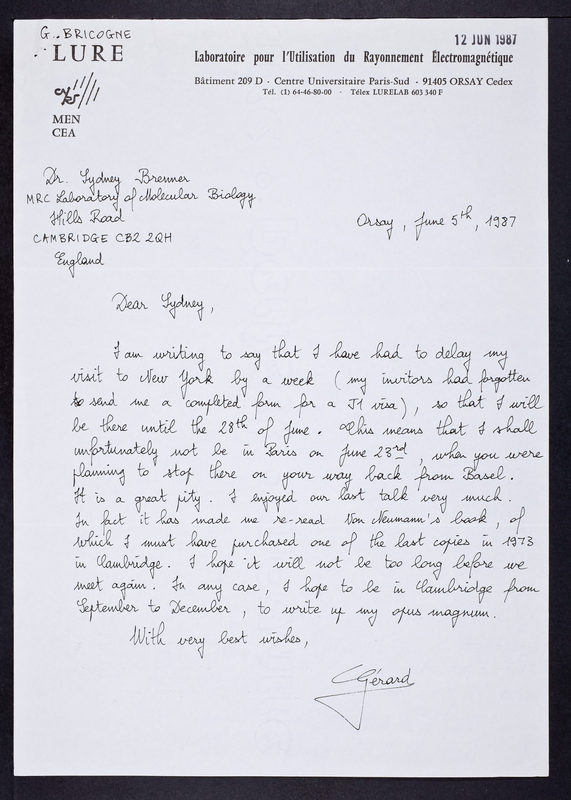 G. BRICOGNE
12 JUN 1987
LURE
Laboratoire pour l'Utilisation du Rayonnement Électromagnétique
Bâtiment 209 D · Centre Universitaire Paris-Sud · 91405 ORSAY Cedex
Tél. (1) 64-46-80-00 · Télex LURELAB 603 340 F
MEN
CEA
Dr. Sydney Brenner
MRC Laboratory of Molecular Biology
Hills Road
CAMBRIDGE CB2 2QH
England
Orsay, June 5th, 1987
Dear Sydney,
I am writing to say that I have had to delay my
visit to New York by a week (my invitors had forgotten
to send me a completed form for a J1 visa), so that I will
be there until the 28th of June. This means that I shall
unfortunately not be in Paris on June 23rd, when you were
planning to stop there on your way back from Basel.
It is a great pity. I enjoyed our last talk very much.
In fact it has made me re-read Von Neumann's book, of
which I must have purchased one of the last copies in 1973
in Cambridge. I hope it will not be too long before we
meet again. In any case, I hope to be in Cambridge from
September to December, to write up my opus magnum.
With very best wishes,
Gérard